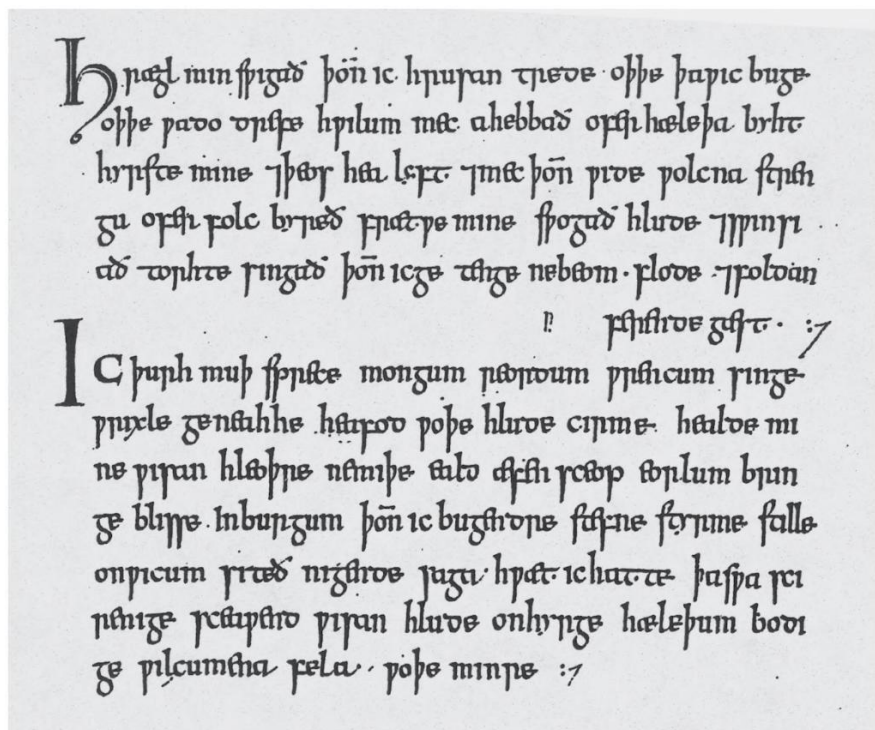 Hrægl min ſƿigað þoñ ic hruſan trede · oþþe þaƿic buge
oþþe ƿado drefe hƿilum mec ahebbað ofer hæleþa byht
hyrſte mine ⁊þeos hea lyft ⁊mec þoñ ƿide ƿolcna ſtren
gu ofer folc byreð frætƿe mine ſƿogað hlude ⁊ſƿinſi
að torhte ſingað þoñ icge tenge nebeom · flode ⁊foldan
ferende gæſt · :⁊
IC þurh muþ ſprece mongum reordum ƿrencum ſinge
ƿrixle geneahhe heafod ƿoþe hlude cirme · healde mi
ne ƿiſan hleoþre nemiþe eald æfen ſceop eorlum brin
ge bliſſe · Inburgum þoñ ic bugendre ſtefne ſtyrme ſtille
onƿicum ſiteð nigende ſaga · hƿæt ic hatte þaſƿa ſci
renige ſceaƿend ƿiſan hlude onhyrge hæleþum bodi
ge ƿilcumena fela · ƿoþe minre :⁊